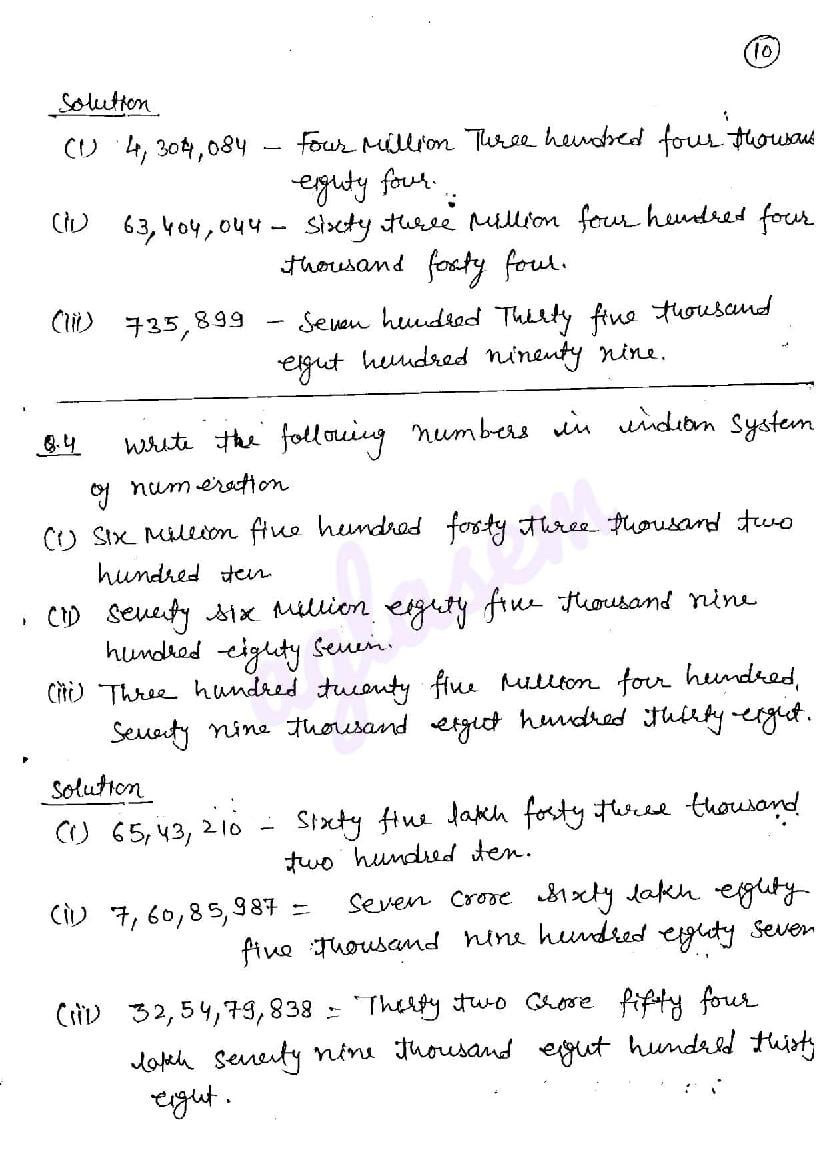 10
Solution
(i) 4,304,084 – Four Million Three hundred four thousan
eighty four.
(ii) 63,404,044 – Sixty three Million four hundred four
thousand forty four.
(iii) 735,899 – Seven hundred Thirty five thousand
eight hundred ninenty nine.
Q.4 Write the following numbers in indian System
of numeration
(i) Six Million five hundred forty three thousand two
hundred ten
(ii) Seventy six Million eighty five thousand nine
hundred eighty seven.
(iii) Three hundred twenty five Million four hundred,
Seventy nine thousand eight hundred thirty eight.
aglasem
Solution
(i) 65,43,210 – Sixty five lakh forty three thousand
two hundred ten.
(ii) 7,60,85,987 = Seven Crore sixty lakh eighty
five thousand nine hundred eighty seven
(iii) 32,54,79,838 = Thirty two Crore fifty four
lakh Seventy nine thousand eight hundred thirty
eight.